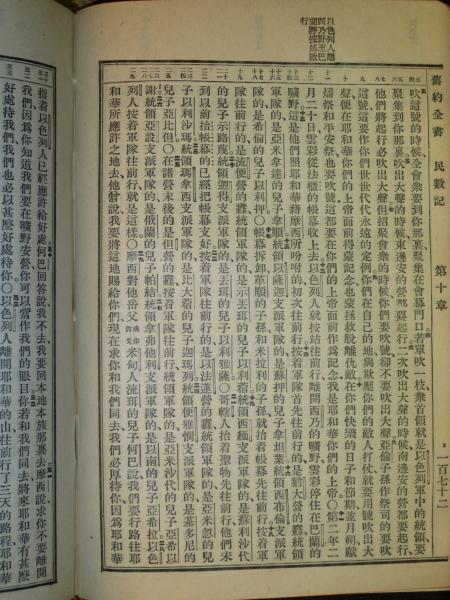 以色列人離
西乃野至巴
蘭野按站啟
行
舊約全書 民數記 第十章 一百七十二
吹這號的時候、全會衆要到你那裏聚集在會幕門口若單吹一枝衆首領就是以色列軍中的統領、要
聚集到你那裏吹出大聲的時候東邊安的營都要起行二次吹出大聲的時候、南邊安的營都要起行、
他們將起行必吹出大聲但招聚會衆的時候你們要吹號卻不要吹出大聲亞倫子孫作祭司的要吹
號這要作你們世世代代永遠的定例你們在自己的地與欺壓你們的敵人打仗就要用號吹出大
聲便在耶和華你們的上帝面前得蒙記念也蒙拯救脫離仇敵在你們快樂的日子和節期並月朔獻
燔祭和平安祭也要吹號這都要在你們的上帝面前作爲記念我是耶和華你們的上帝〇第二年二
月二十日雲彩從法櫃的帳幕收上去以色列人就按站往前行離開西乃的曠野、雲彩停住在巴蘭的
曠野、這是他們照耶和華藉摩西所吩咐的初次往前行按着軍隊首先往前行的是猶大營的纛統領
軍隊的是亞米拿達的兒子拿順統領以薩迦支派軍隊的是蘇押的兒子拿坦業統領西布倫支派軍
隊的是希倫的兒子以利押〇帳幕拆卸革順的子孫和米拉利的子孫就抬着帳幕先往前行按着軍
隊往前行的是流便營的纛統領軍隊的是示丟珥的兒子以利蓿統領西緬支派軍隊的是蘇利沙代
的兒子示路蔑統領迦得支派軍隊的是丟珥的兒子以利雅薩〇哥轄人抬着聖物先往前行他們未
到以前抬帳幕的已經把帳幕支好按着軍隊往前行的是以法蓮營的纛統領軍隊的是亞米忽的兒
子以利沙瑪統領瑪拿西支派軍隊的是比大蓿的兒子迦瑪列統領便雅憫支派軍隊的是基多尼的
兒子亞比但〇在諸營末後的是但營的纛按着軍隊往前行統領軍隊的是亞米沙代的兒子亞希以
謝統領亞設支派軍隊的是俄蘭的兒子帕結統領拿弗他利支派軍隊的是以南的兒子亞希拉以色
列人按着軍隊往前行就是這樣〇摩西對他岳父米甸人流珥的兒子何巴說我們要行路往耶
和華所應許之地去、他曾說我要將這地賜給你們現在求你和我們同去我們必厚待你因爲耶和華
指着以色列人已經應許給好處何巴回答說我不去我要回本地本族那裏去摩西說求你不要離開
我們、因爲你知道我們要在曠野安營你可以當作我們的眼目你若和我們同去將來耶和華有甚麼
好處待我們我們也必以甚麼好處待你〇以色列人離開耶和華的山往前行了三天的路程耶和華